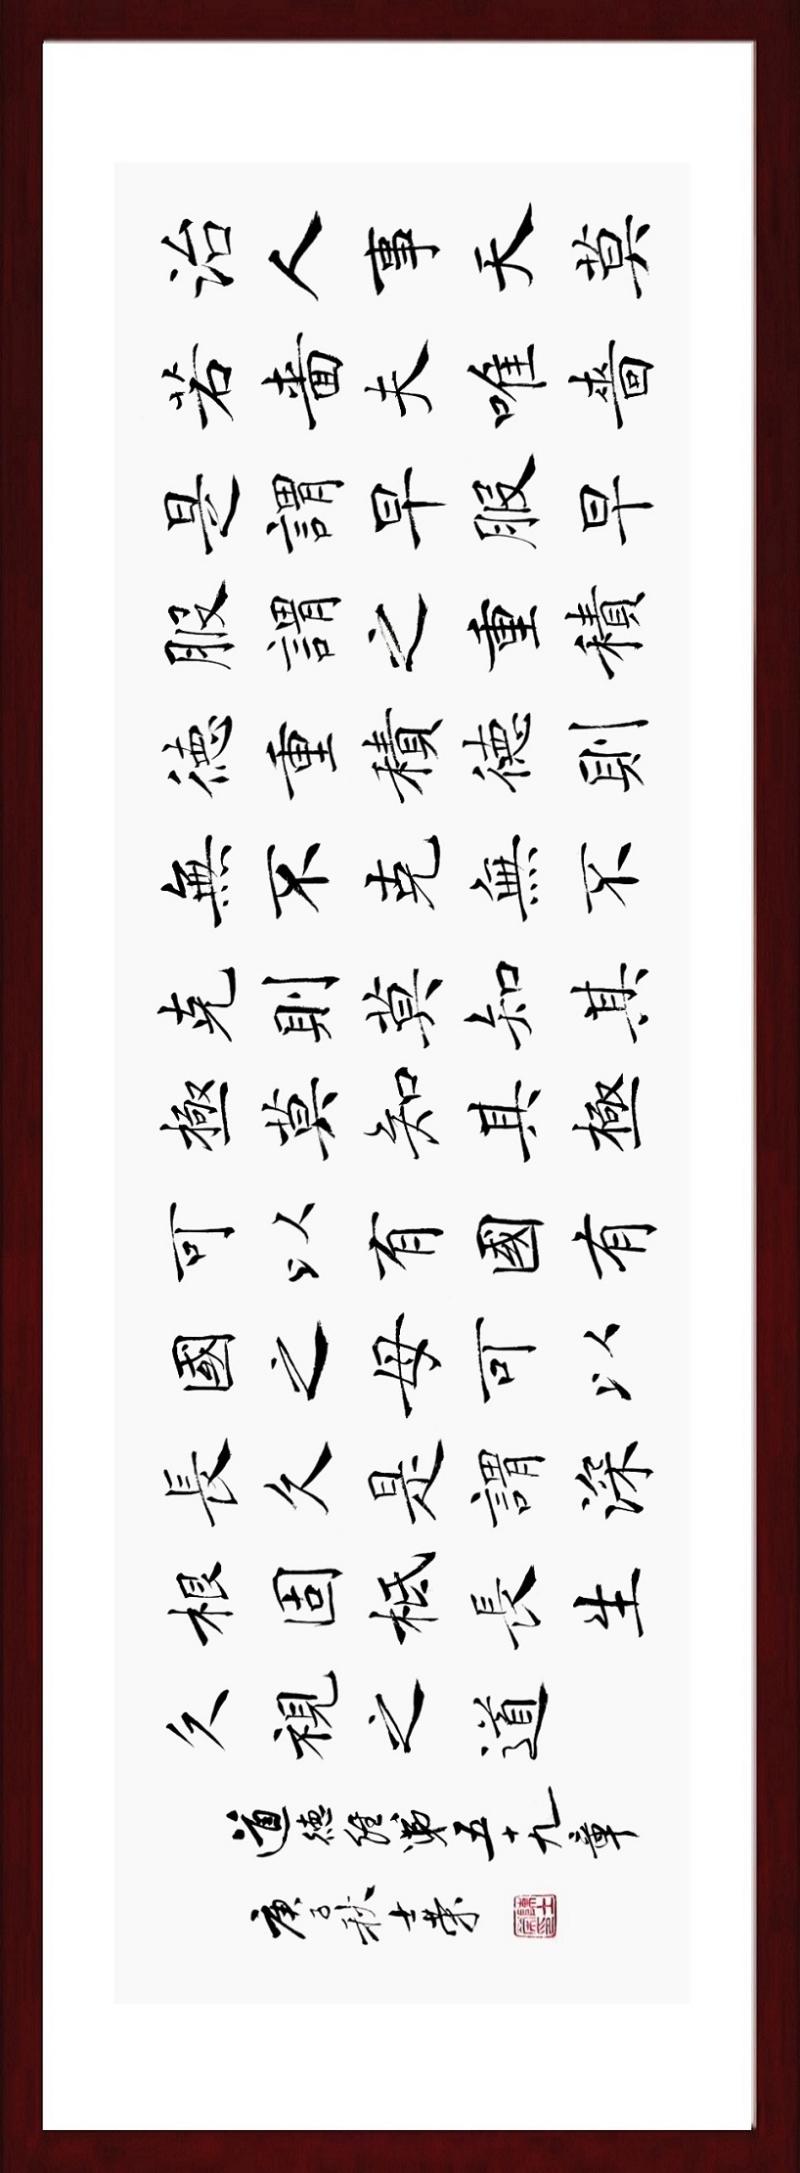 治人事天莫
若嗇夫唯嗇
是謂早服早
服謂之重積
德重積德則
無不克無不
克則莫知其
極莫知其極
可以有國有
國之母可以
長久是謂深
根固柢長生
久視之道
道德經第五十九章
庚子秋士榮